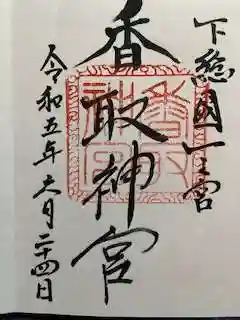 下総國一之宮
香取神宮
令和五年六月二十四日